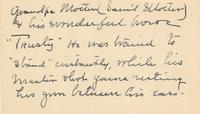 Grandpa Motter (Daniel Motter)
& his wonderful horse
"Trusty" He was trained to
"stand" instantly, while his
master shot game resting
his gun between his ears.